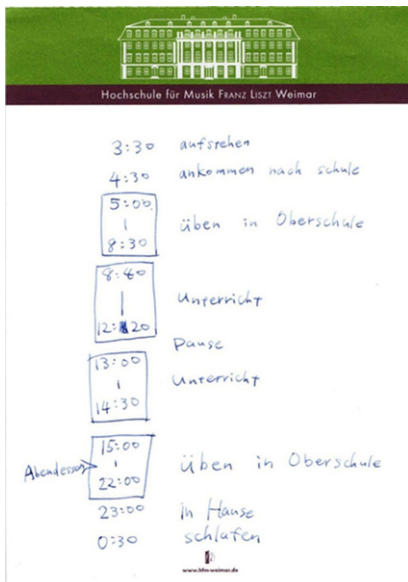 Hochschule für Musik FRANZ LISZT Weimar
3:30 aufstehen
4:30 ankommen nach schule
5:00
|
8:30
üben in Oberschule
8:40
|
12:20
Unterricht
Pause
13:00
|
14:30
Unterricht
15:00
|
22:00
Abendessen
üben in Oberschule
23:00 in Hause
0:30 schlafen
www.hfm-weimar.de